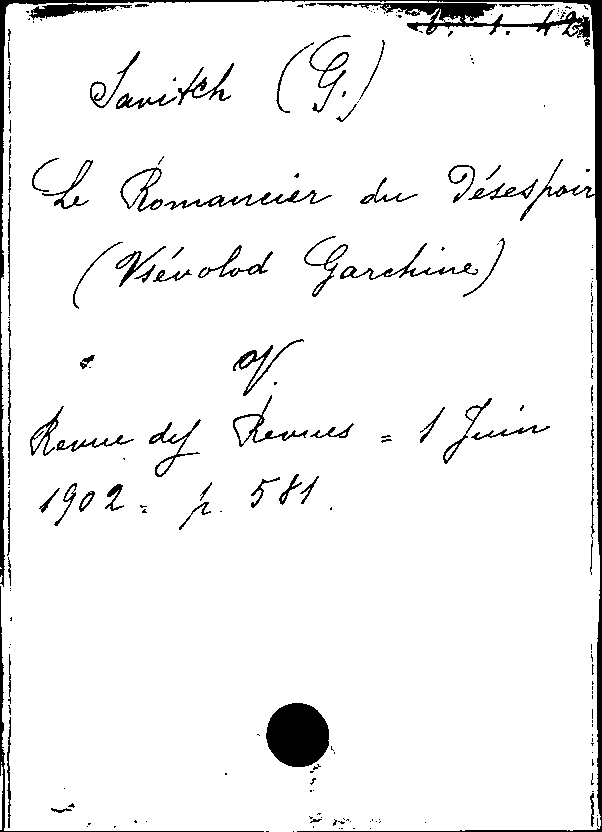 Savitch (G.)
Le Romancier du Désespoir
(Vsévolod Garchine)
V.
Revue des Revues = 1 Juin
1902 = p. 581.